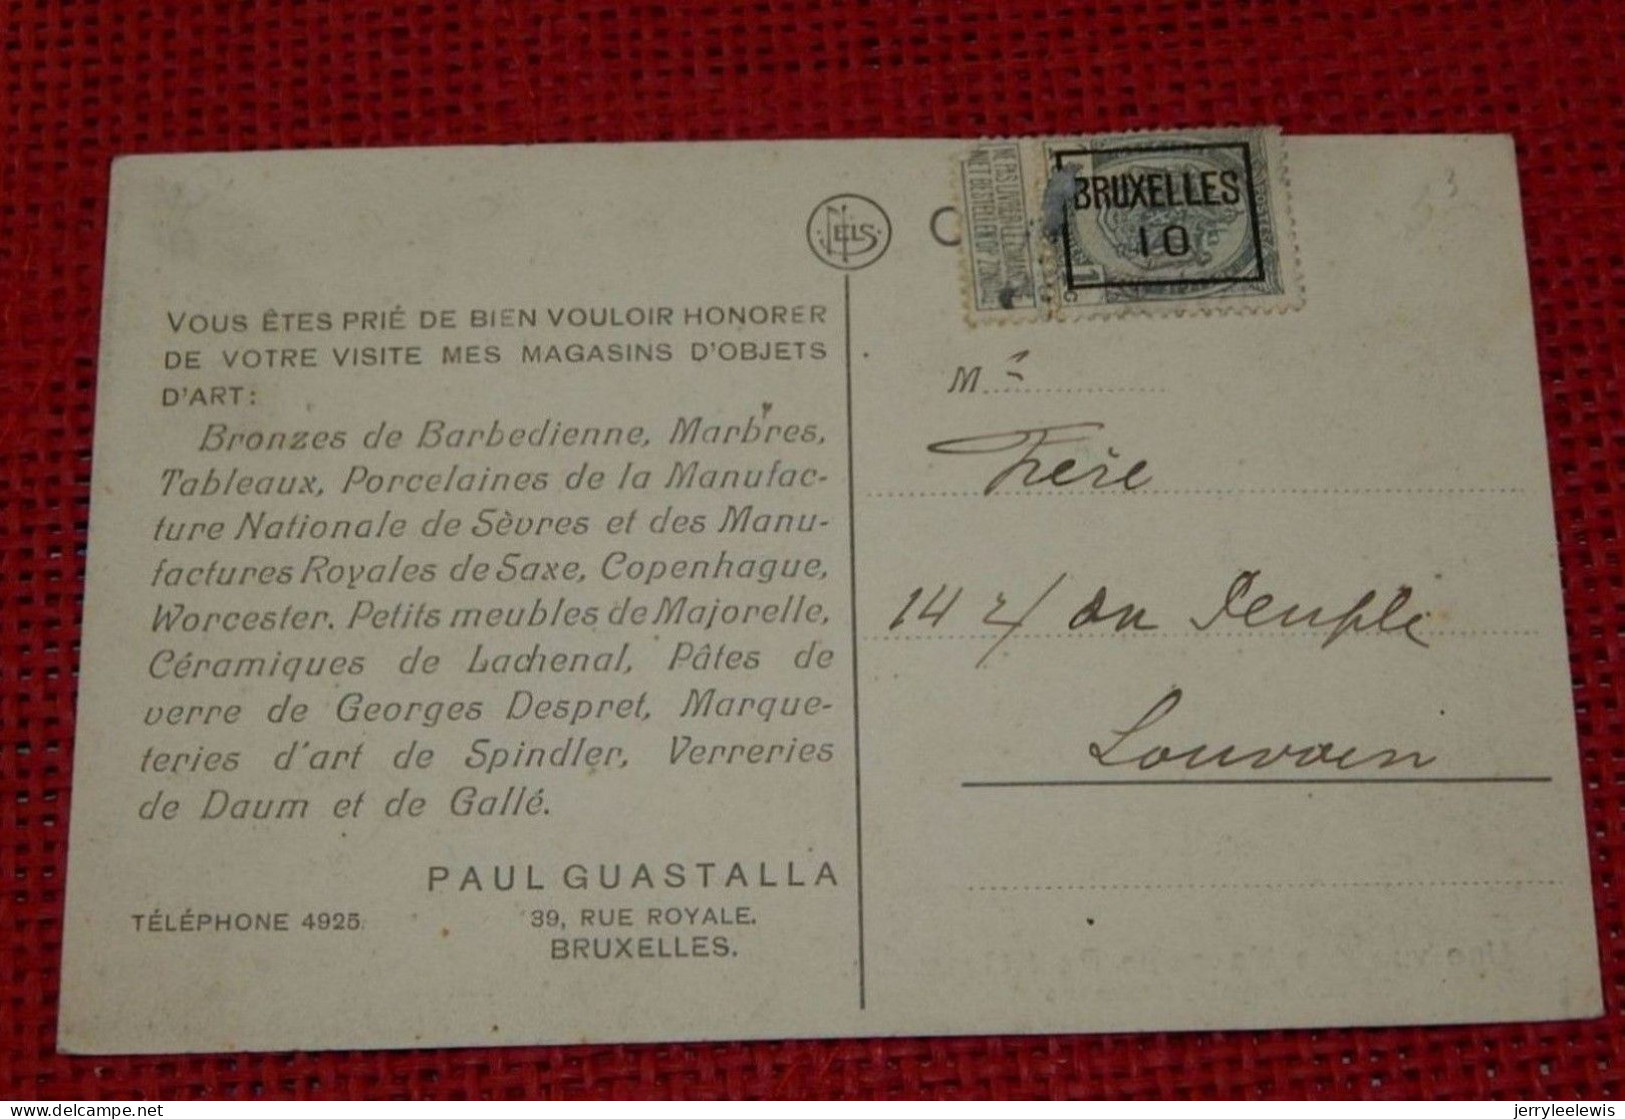 NELS
C
BRUXELLES
10
1
c
3
VOUS ÊTES PRIÉ DE BIEN VOULOIR HONORER
DE VOTRE VISITE MES MAGASINS D'OBJETS
D'ART:
Bronzes de Barbedienne, Marbres,
Tableaux, Porcelaines de la Manufac-
ture Nationale de Sèvres et des Manu-
factures Royales de Saxe, Copenhague,
Worcester. Petits meubles de Majorelle,
Céramiques de Lachenal, Pâtes de
verre de Georges Despret, Marque-
teries d'art de Spindler, Verreries
de Daum et de Gallé.
PAUL GUASTALLA
TÉLÉPHONE 4925.
39, RUE ROYALE.
BRUXELLES.
M
Frère
14
Louvain
delcampe.net
jerryleelewis